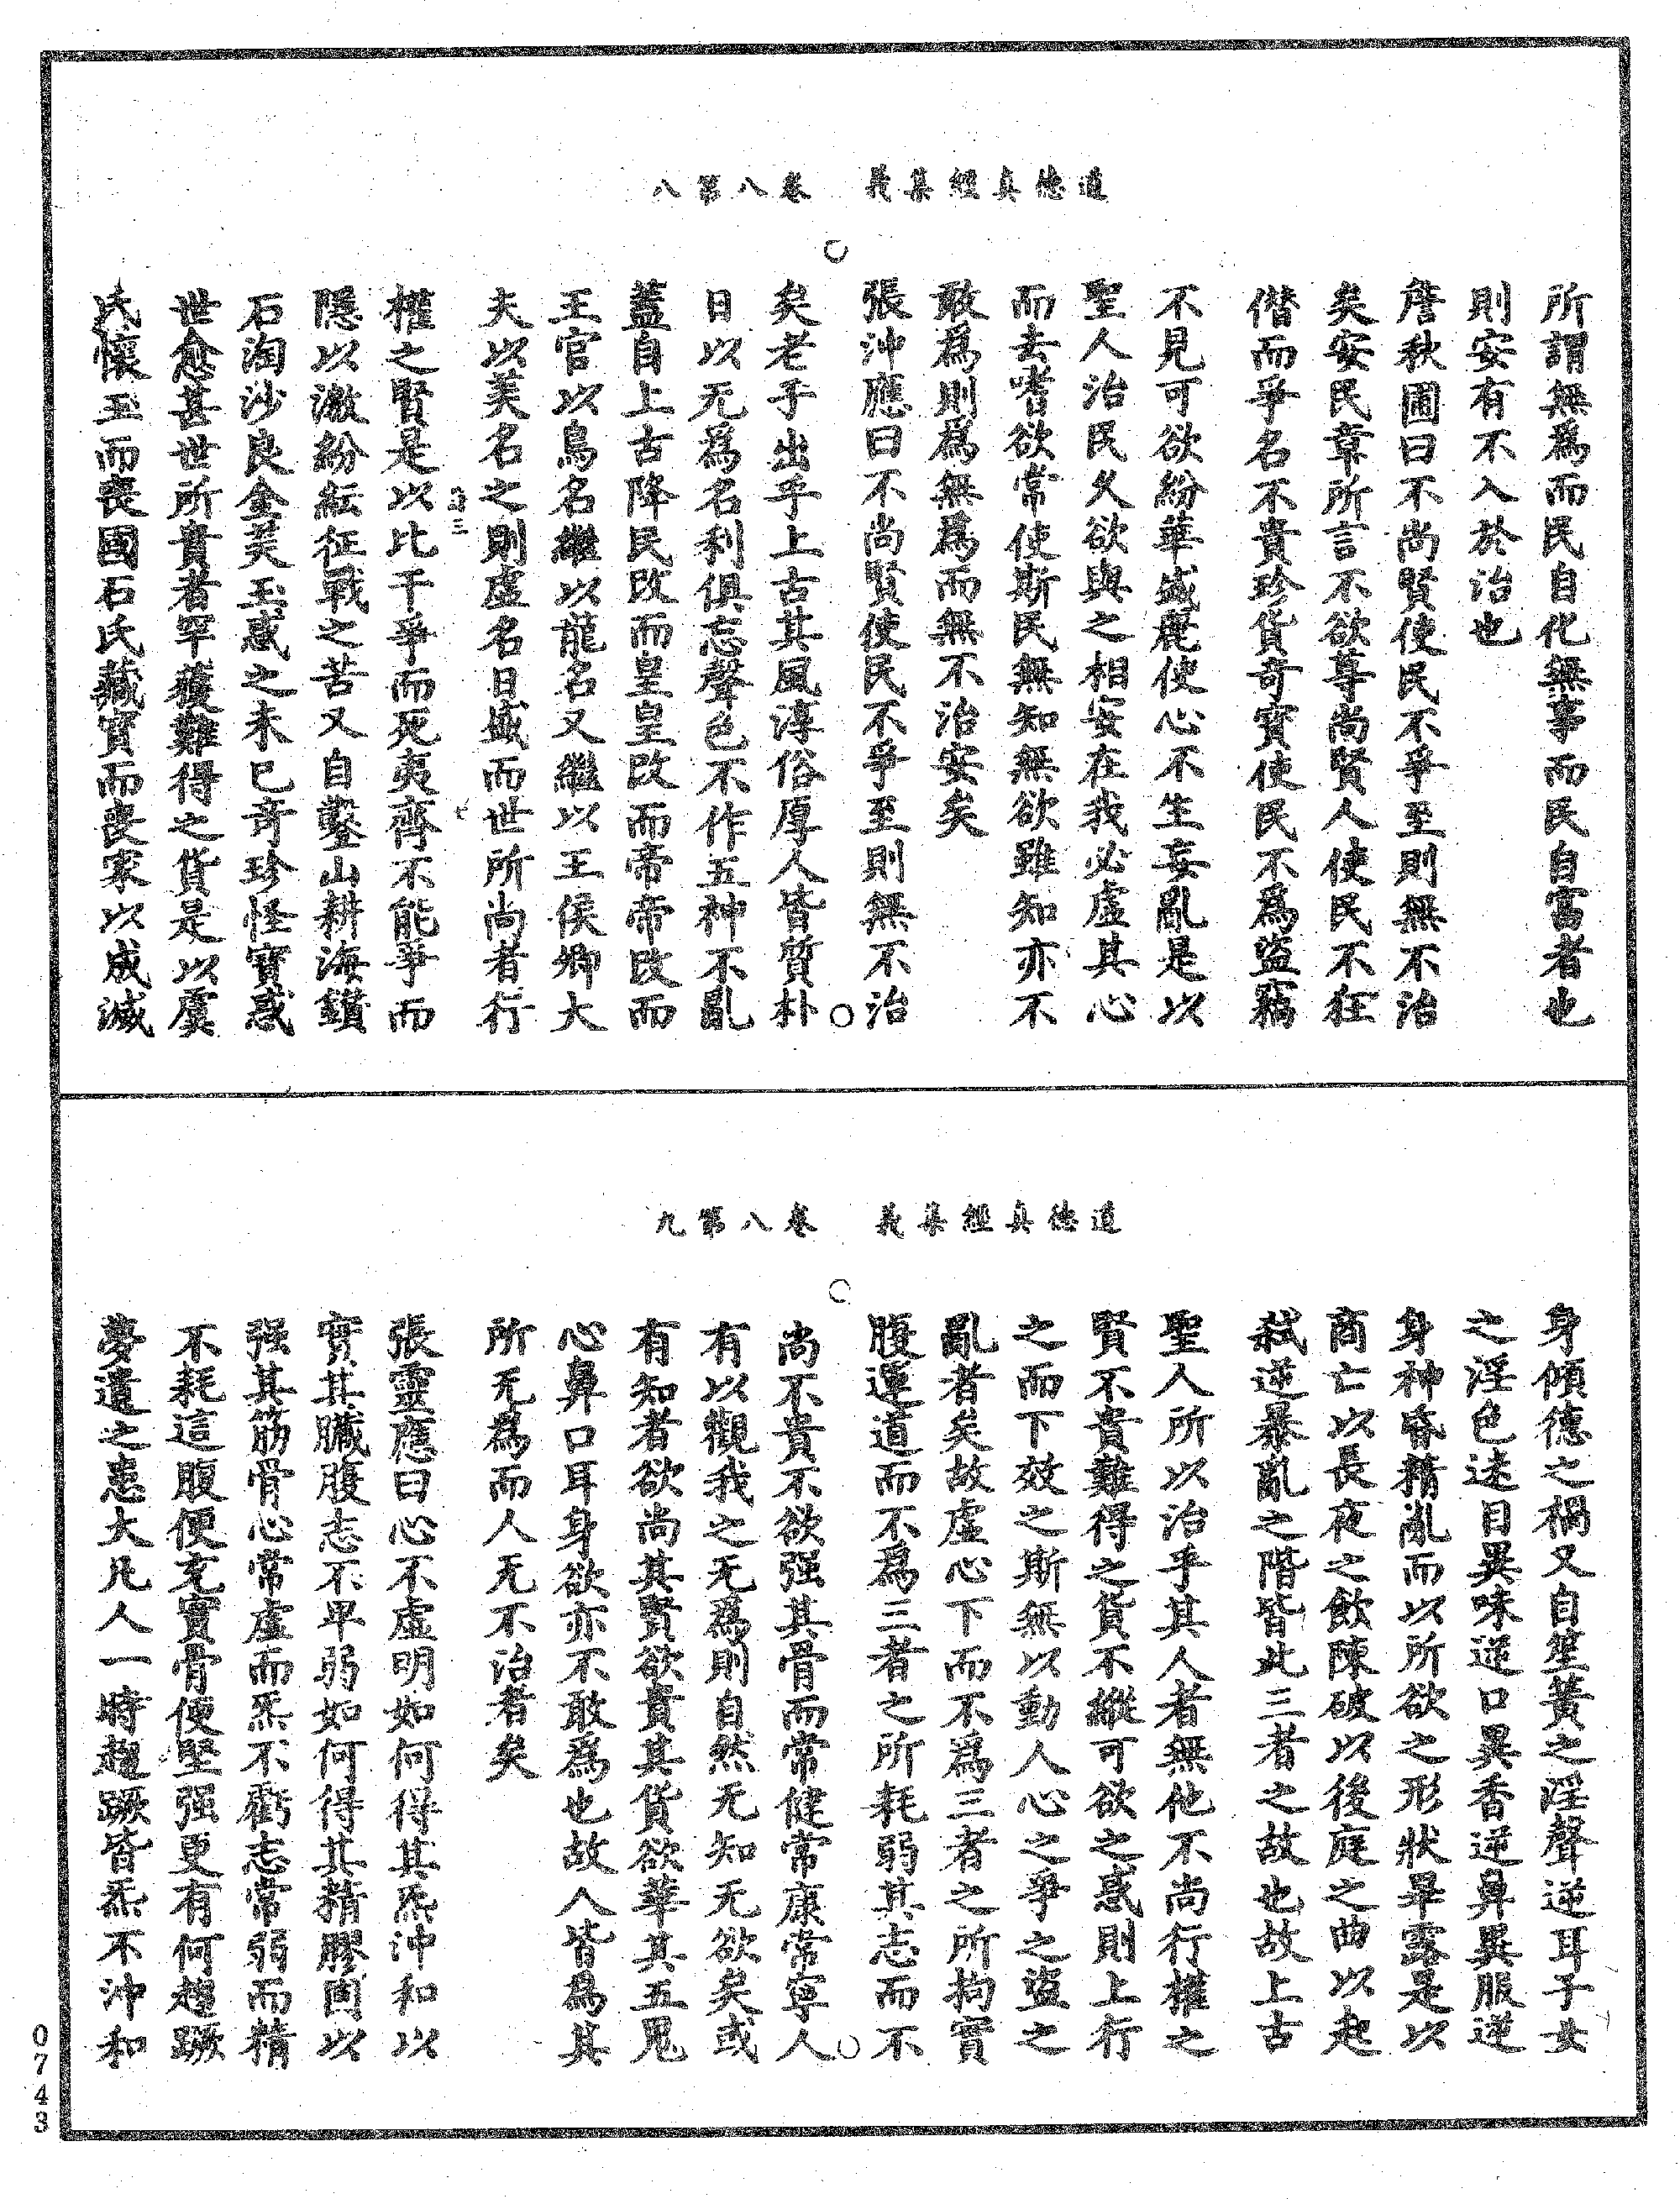 道德真經集義　卷八第八
所謂無為而民自化無事而民自富者也
則安有不入於治也
詹秋圃曰不尚賢使民不爭至則無不治
矣安民章所言不欲尊尚賢人使民不狂
僭而爭名不貴珍貨奇寶使民不為盜竊
不見可欲紛華盛麗使心不生妄亂是以
聖人治民久欲與之相安在我必虛其心
而去嗜欲常使斯民無知無欲雖知亦不
敢為則為無為而無不治安矣
張沖應曰不尚賢使民不爭至則無不治
矣老子出乎上古其風淳俗厚人皆質朴
日以无為名利俱忘聲色不作五神不亂
蓋自上古降民改而皇皇改而帝帝改而
王官以鳥名繼以龍名又繼以王侯卿大
夫以美名之則虛名日盛而世所尚者行
權之賢是以比干爭而死夷齊不能爭而
隱以激紛紜征戰之苦又自鑿山耕海鑽
石淘沙良金美玉惑之未已奇珍怪寶惑
世愈甚世所貴者罕獲難得之貨是以虞
氏懷玉而喪國石氏藏寶而喪家以成滅
道德真經集義　卷八第九
身傾德之禍又自笙簧之淫聲逆耳子女
之淫色迷目異味逆口異香逆鼻異服逆
身神昏精亂而以所欲之形狀畢露是以
商亡以長夜之飲陳破以後庭之曲以起
弒逆暴亂之階皆此三者之故也故上古
聖人所以治乎其人者無他不尚行權之
賢不貴難得之貨不縱可欲之惑則上行
之而下效之斯無以動人心之爭之盜之
亂者矣故虛心下而不為三者之所拘實
腹運道而不為三者之所耗弱其志而不
尚不貴不欲强其骨而常健常康常寧人
有以觀我之无為則自然无知无欲矣或
有知者欲尚其賢欲貴其貨欲華其五鬼
心鼻口耳身欲亦不敢為也故人皆為其
所无為而人无不治者矣
張靈應曰心不虛明如何得其炁沖和以
實其臟腹志不卑弱如何得其精膠固以
强其筋骨心常虛而炁不虧志常弱而精
不耗這腹便充實骨便堅强更有何趨蹶
夢遺之患大凡人一時趨蹶皆炁不沖和
0743